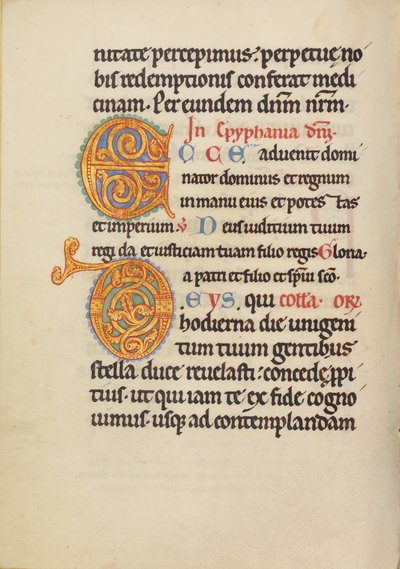 nitate percepimus. perpetue no
bis redemptionis conferat medi
cinam. Per eundem dnm nrm.
In Epyphania dni
ECCE advenit domi
nator dominus et regnum
in manu eius et potestas
et imperium. V DEus iuditium tuum
regi da. et iusticiam tuam filio regis Gloria
a patri et filio et spiui sco.
DEUS. qui colla. or
hodierna die unigeni
tum tuum gentibus
stella duce revelasti. concede ppi
tius. ut qui iam te ex fide cogno
uimus. usq ad contemplandam